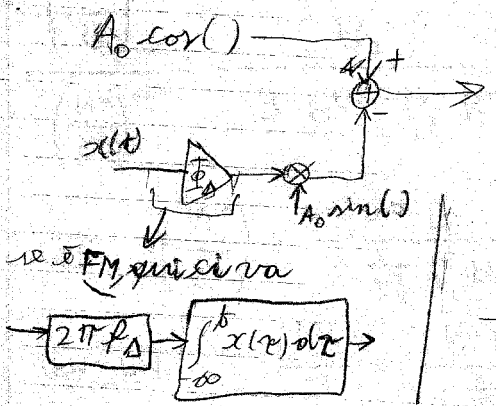 A₀ cos()
+
-
x(t)
Φ_Δ
A₀ sin()
se è FM, qui ci va
2πf_Δ
∫_{-∞}^{t} x(τ)dτ